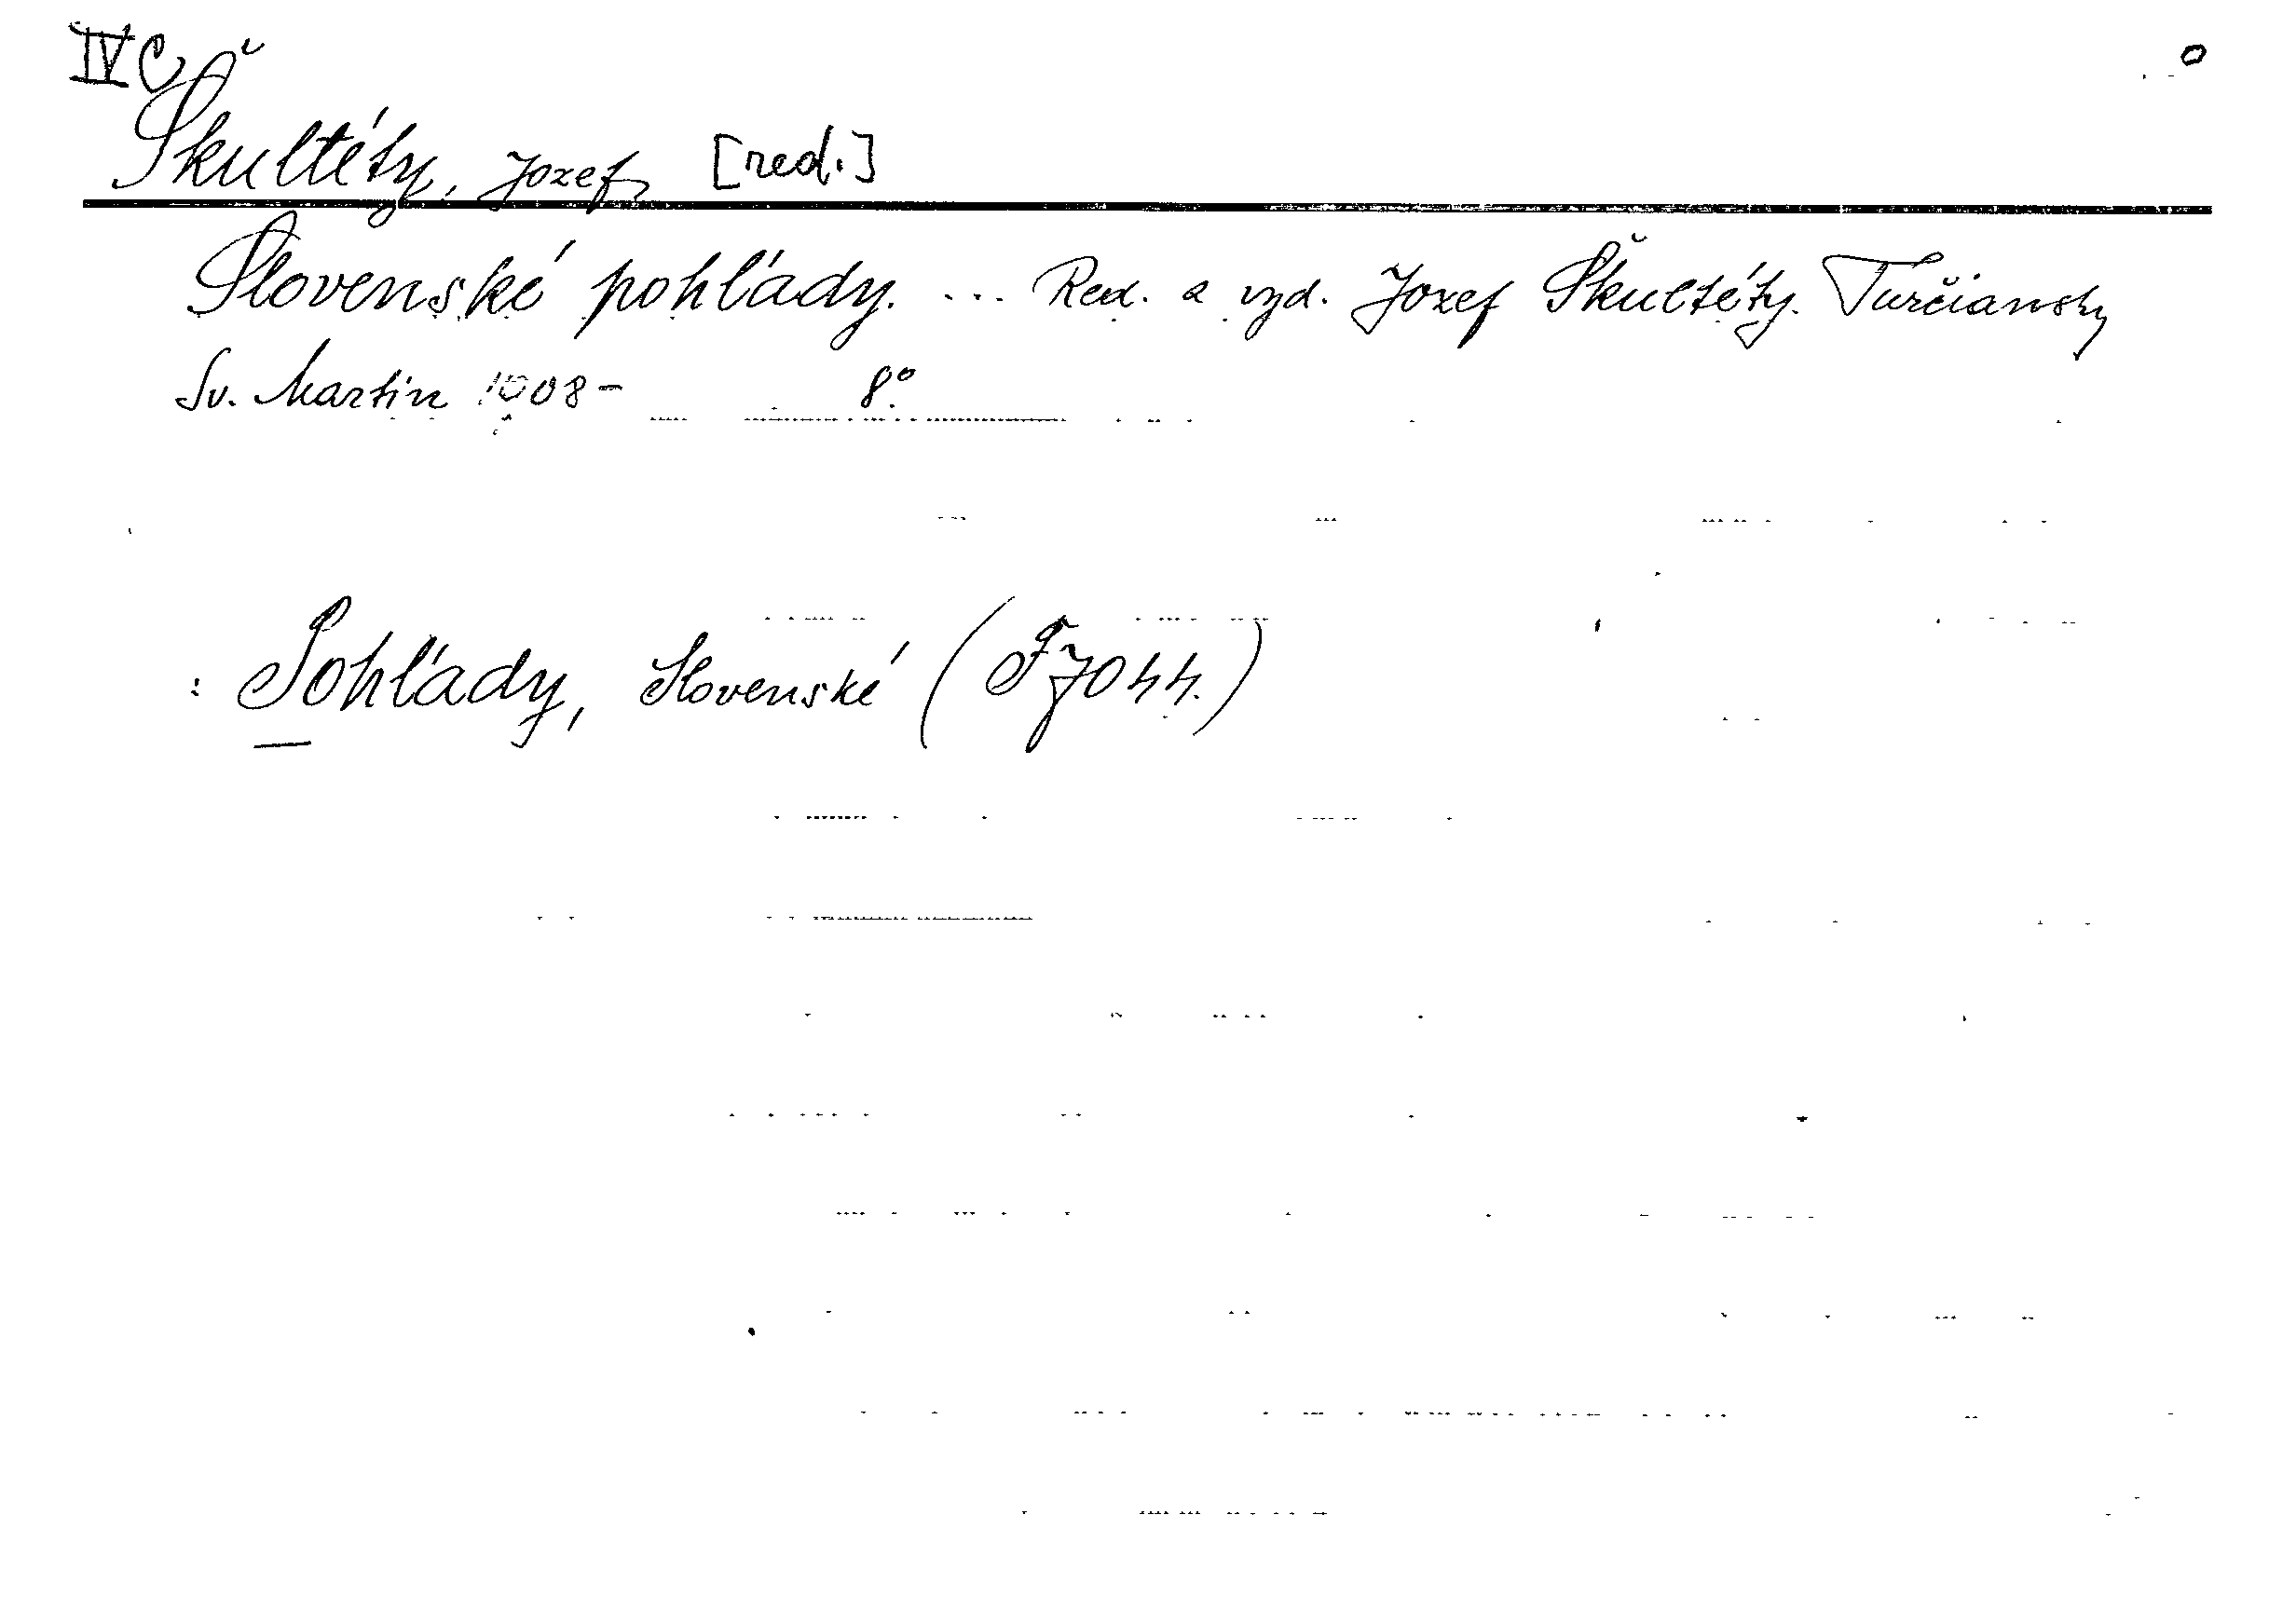 IV C
Škultéty, Jozef [red.]
Slovenské pohľady. ... Red. a vyd. Jozef Škultéty. Turčiansky
Sv. Martin 1908- 8°.
: Pohľady, Slovenské (F 7044.)